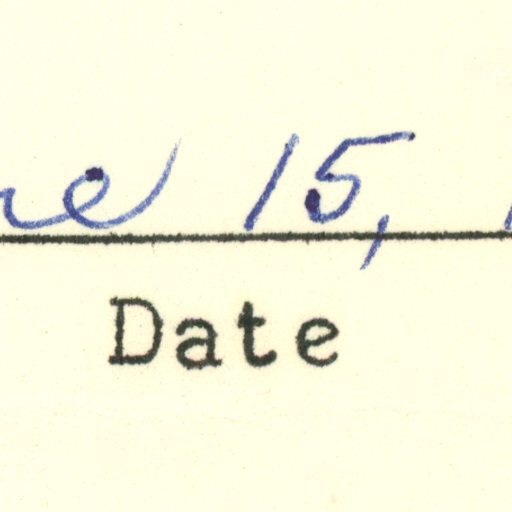 ne 15,
Date